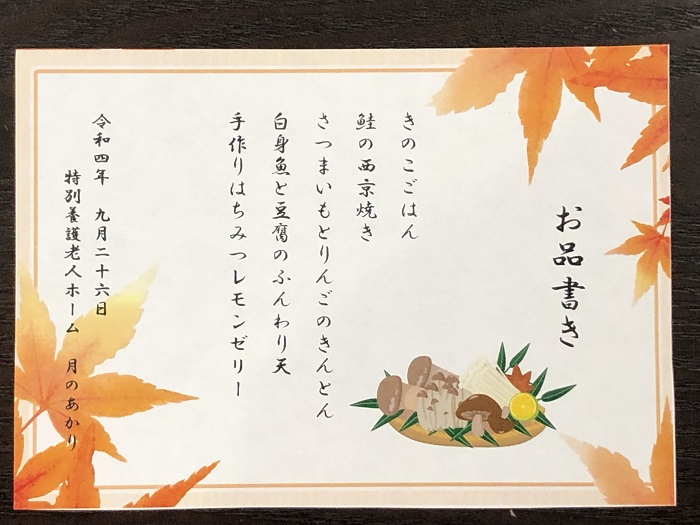 お品書き
きのこごはん
鮭の西京焼き
さつまいもとりんごのきんとん
白身魚と豆腐のふんわり天
手作りはちみつレモンゼリー
令和四年　九月二十六日
特別養護老人ホーム　月のあかり